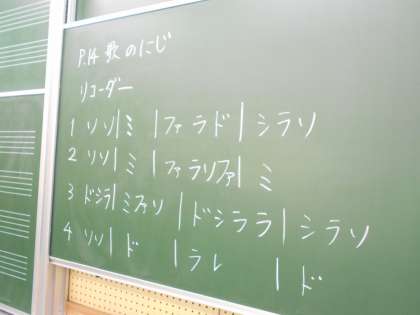 P.14 歌のにじ
リコーダー
1 ソソ|ミ |ファラド|シラソ
2 ソソ|ミ |ファラソファ|ミ
3 ドシラ|ミファソ |ドシララ|シラソ
4 ソソ|ド |ラレ |ド